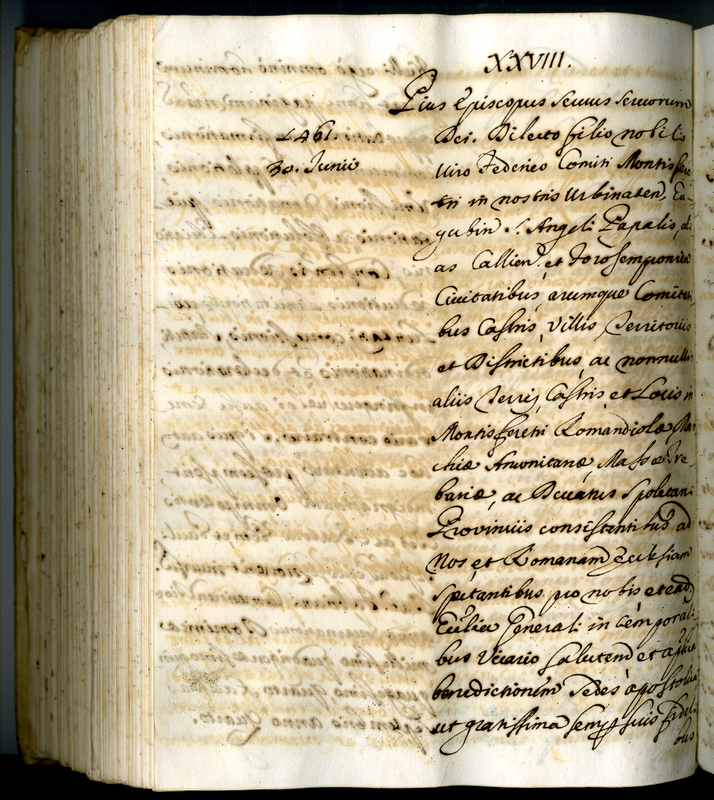 XXVIII.
Pius Episcopus servus servorum
1461.
30. Junii
Dei. Dilecto filio nobili
viro Federico Comiti Montisfere
tri in nostris Urbinaten, Eu-
gubin S. Angeli Papalis, ali
as Callien. et Forosempronien
Civitatibus, arumque Comitati
bus Castris, Villis, Territoriis
et Districtibus, ac nonnullis
aliis Terris, Castris et Locis in
Montisferetri Romandiolæ Mar
chiæ Anconitanæ, Massæ Tre-
bariæ, ac Ducatus Spoletani
Provinciis consistentibus ad
Nos, et Romanam Ecclesiam
spectantibus pro nobis et ead.
Ecclia Generali in temporali-
bus Vicario salutem et aplicā
benedictionem Sedes apostolica
ut gratissima semp suis fideli-
bus